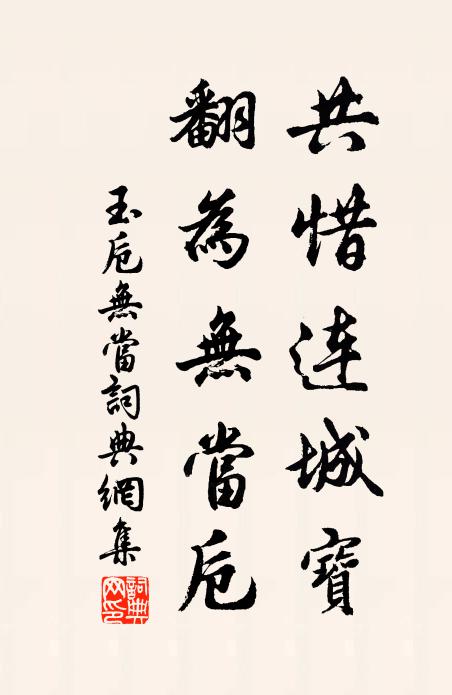 共惜連城寶
翻為無當卮
玉卮無當詞典網集
詞典网印